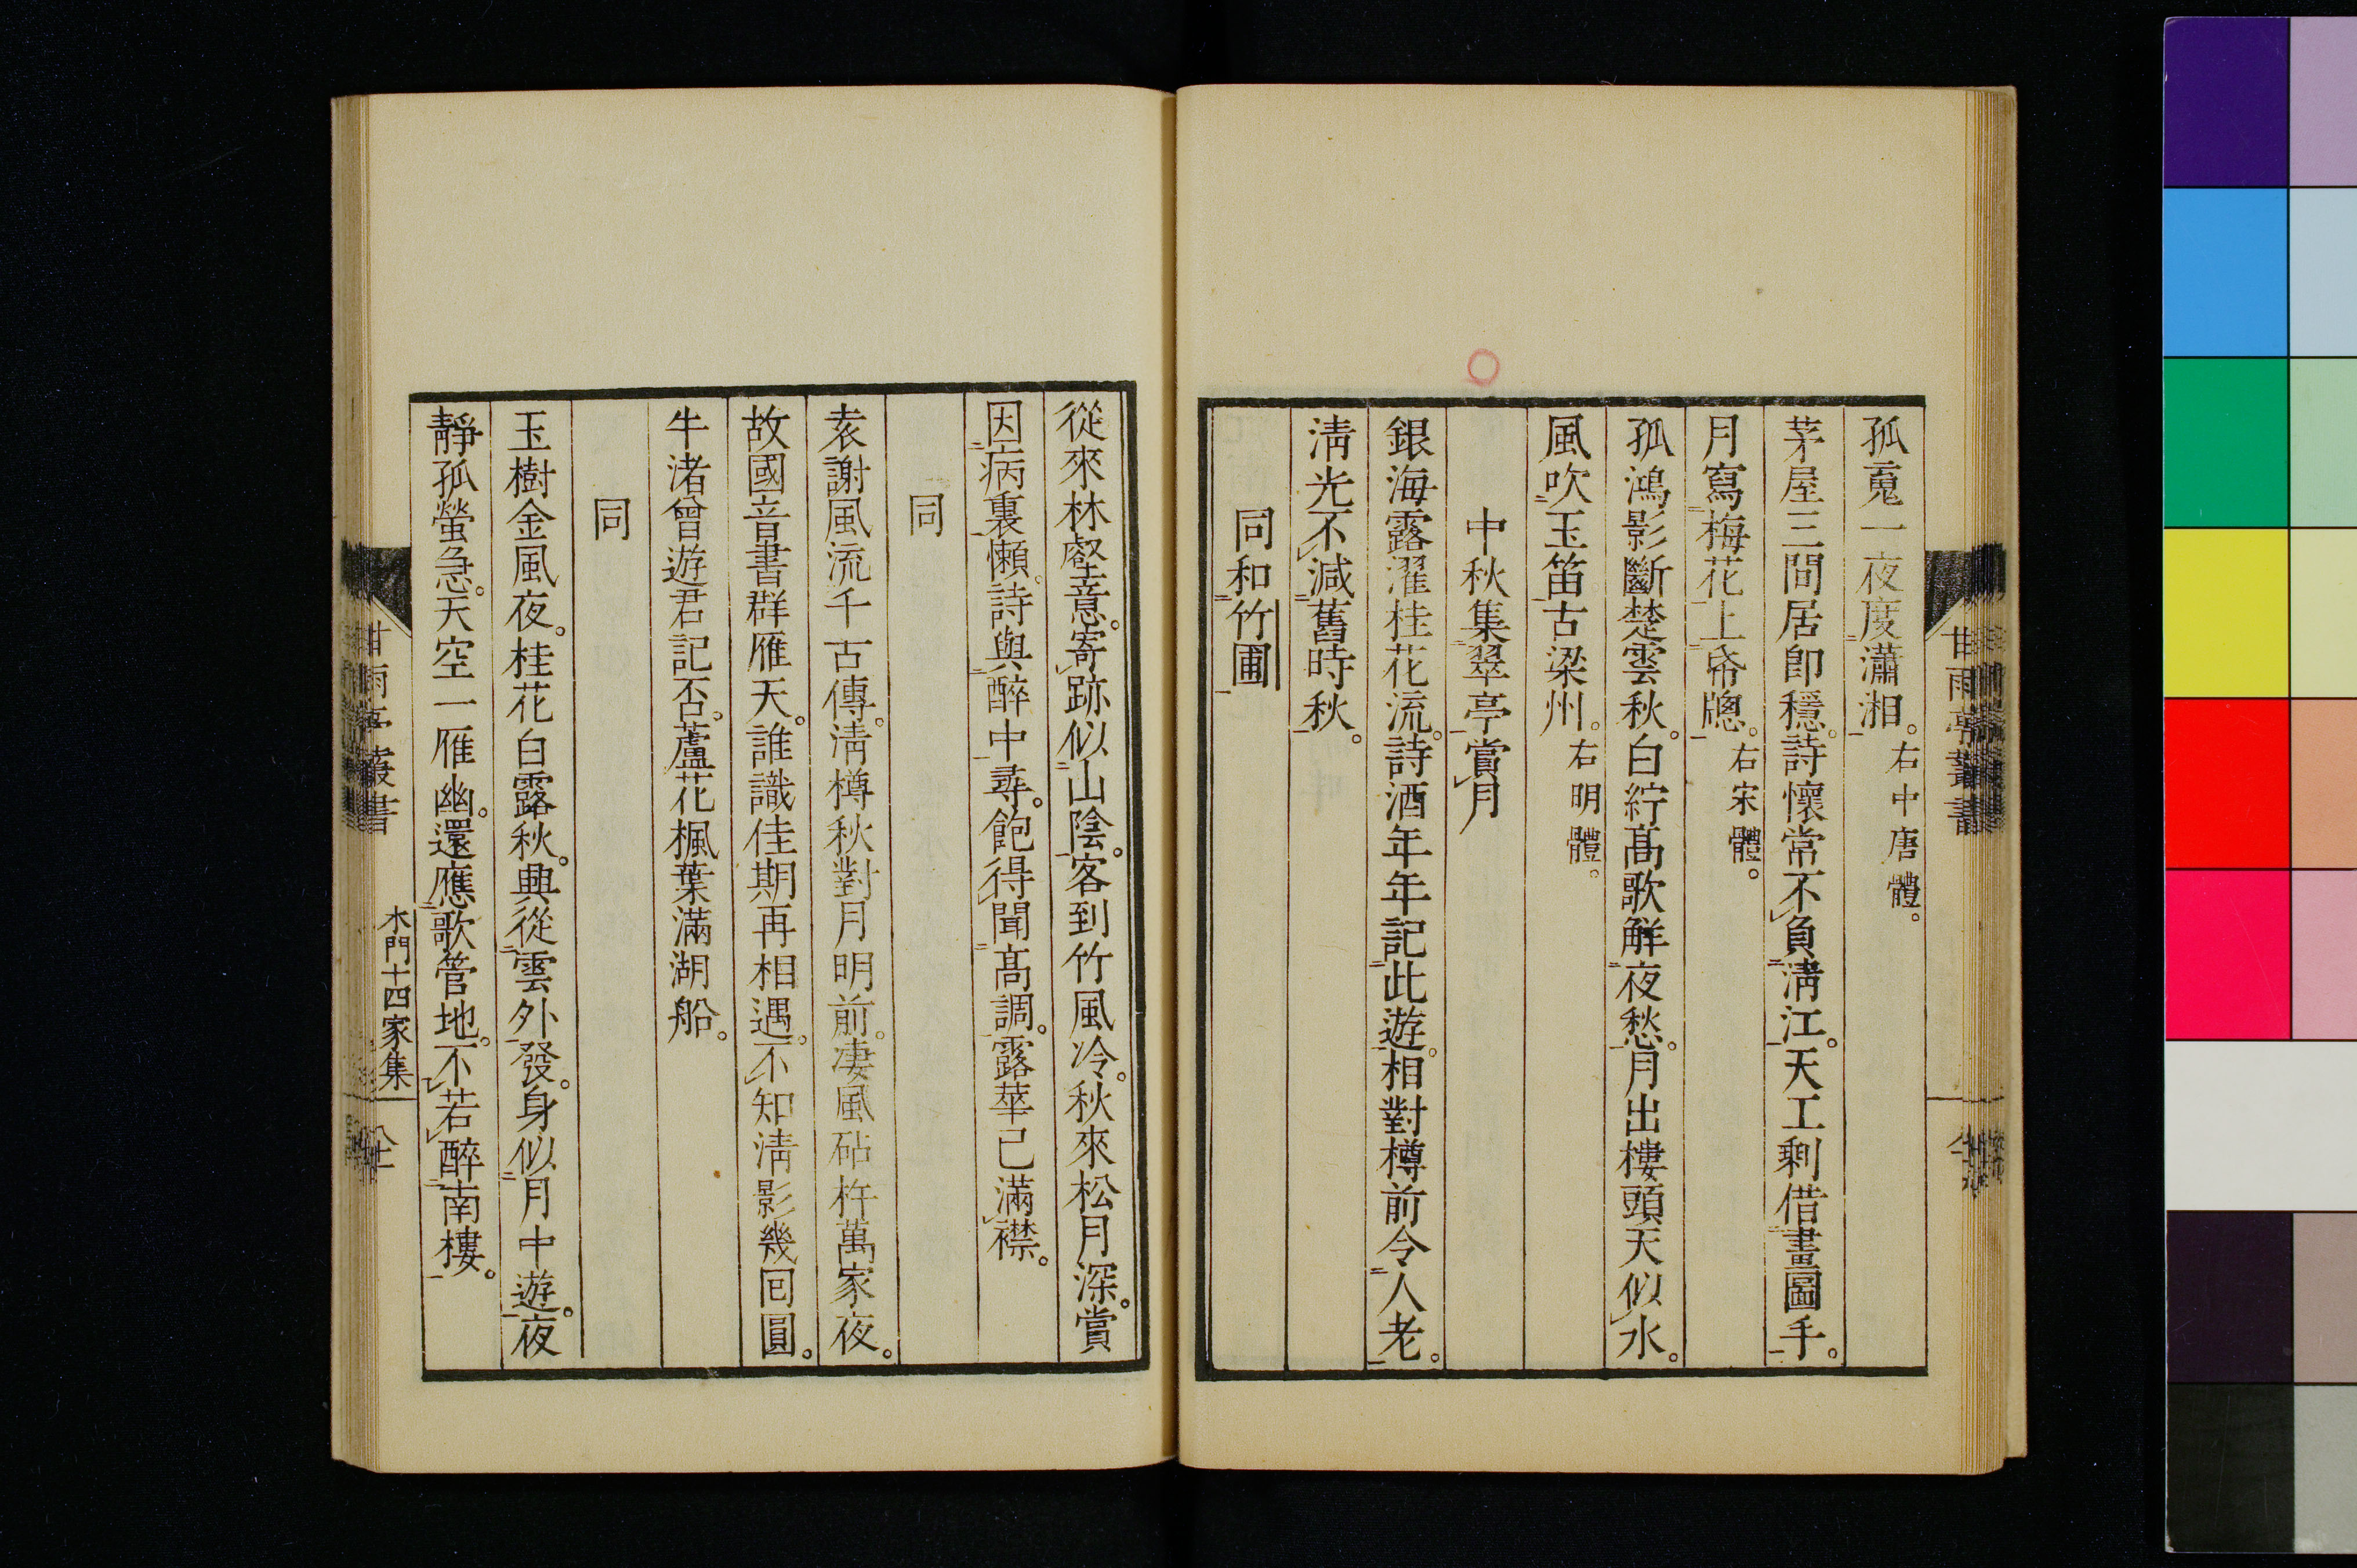 孤蒐一夜度瀟湘。右中唐體。
茅屋三間居卽穩。詩懷常不負淸江。天工剩借畫圖手。
月寫梅花上帋牕。右宋體。
孤鴻影斷楚雲秋。白紵髙歌解夜愁。月出樓頭天似水。
風吹玉笛古梁州。右明體。
中秋集翠亭賞月
銀海露濯桂花流。詩酒年年記此遊。相對樽前令人老。
淸光不減舊時秋。
同和竹圃
從來林壑意。寄跡似山陰。客到竹風冷。秋來松月深。賞
因病裏懶。詩與醉中尋。飽得聞髙調。露華已滿襟。
同
袁謝風流千古傳。淸樽秋對月明前。凄風砧杵萬家夜。
故國音書群雁天。誰識佳期再相遇。不知淸影幾囘圓。
牛渚曾遊君記否。蘆花楓葉滿湖船。
同
玉樹金風夜。桂花白露秋。興從雲外發。身似月中遊。夜
靜孤螢急。天空一雁幽。還應歌管地。不若醉南樓。
甘雨亭叢書
木門十四家集
甘雨亭叢書